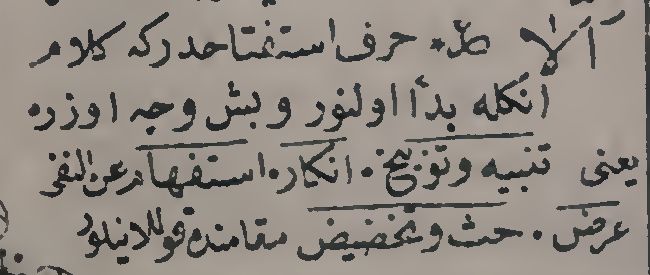 اَلَا ط * حرف استفتاحدر كه كلام
انكله بدأ اولنور و بش وجه اوزره
يعنى تنبيه وتوبيخ . انكار . استفهام عن النفى
عرض . حث وتحضيض مقامنده قوللانيلور